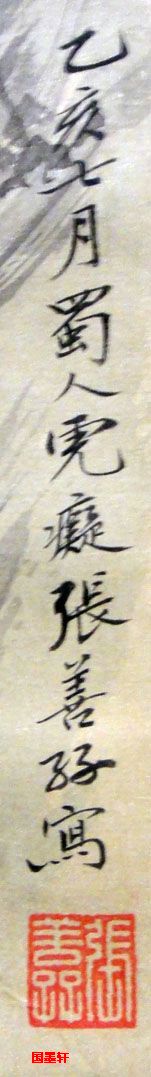 乙亥七月蜀人虎癡張善孖寫
張善孖
国墨轩